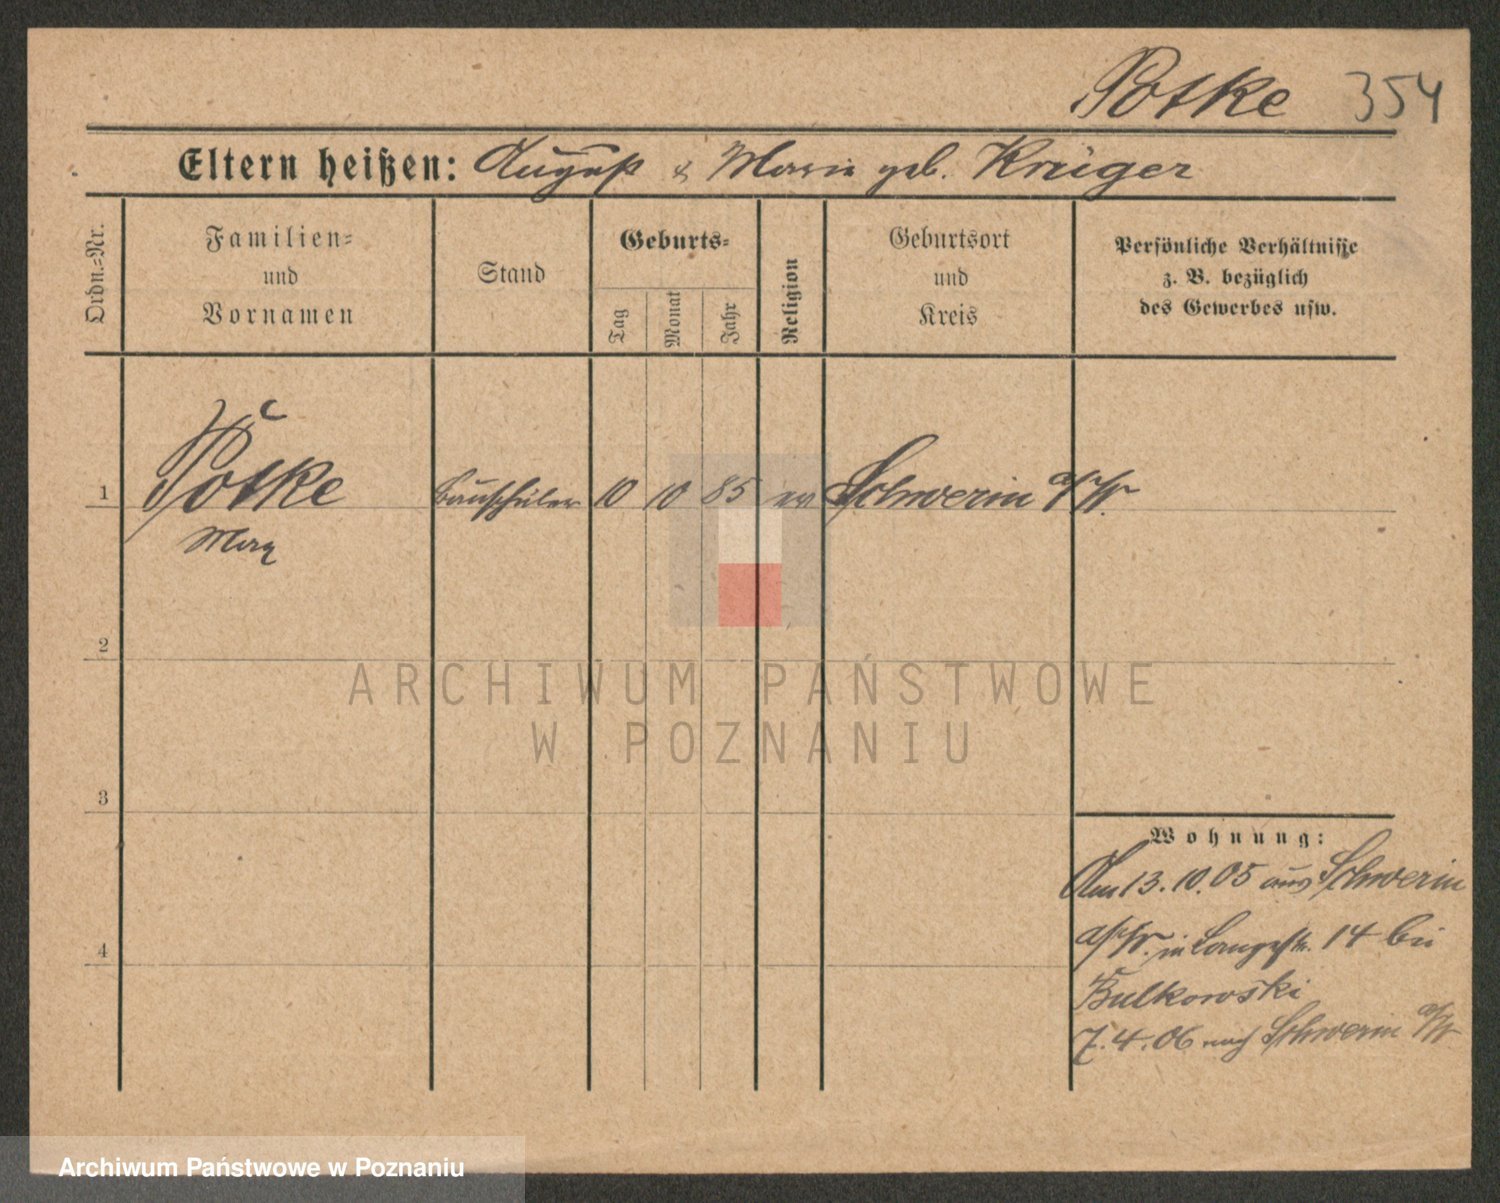 Potke 354
Eltern heißen: August & Marie geb. Krüger
Ordn.-Nr.
Familien-
und
Vornamen
Stand
Geburts-
Tag
Monat
Jahr
Religion
Geburtsort
und
Kreis
Persönliche Verhältnisse
z. B. bezüglich
des Gewerbes usw.
1 Potke Bauschüler 10 10 85 ev Schwerin a/W.
Max
2
3
4
Wohnung:
Am 13.10.05 aus Schwerin
a/W. in Langestr. 14 bei
Bulkowski
7.4.06 nach Schwerin a/W
ARCHIWUM PAŃSTWOWE
W POZNANIU
Archiwum Państwowe w Poznaniu